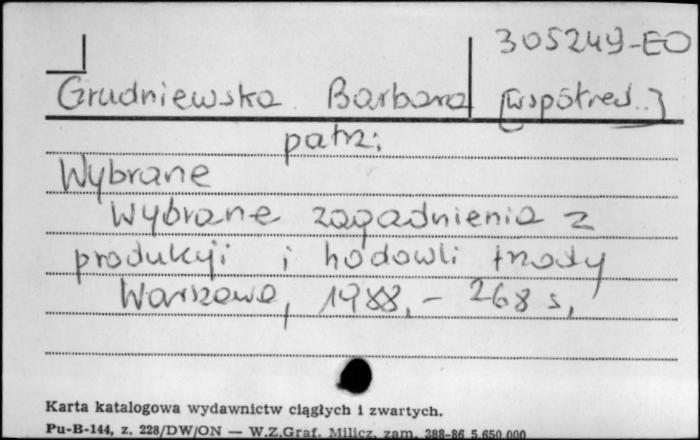 305249-EO
Grudniewska Barbara [współred..]
patrz:
Wybrane
Wybrane zagadnienia z
produkcji i hodowli trzody
Warszawa, 1988, - 268 s,
Karta katalogowa wydawnictw ciągłych i zwartych.
Pu-B-144, z. 228/DW/ON — W.Z.Graf. Milicz, zam. 388-86 5.650.000